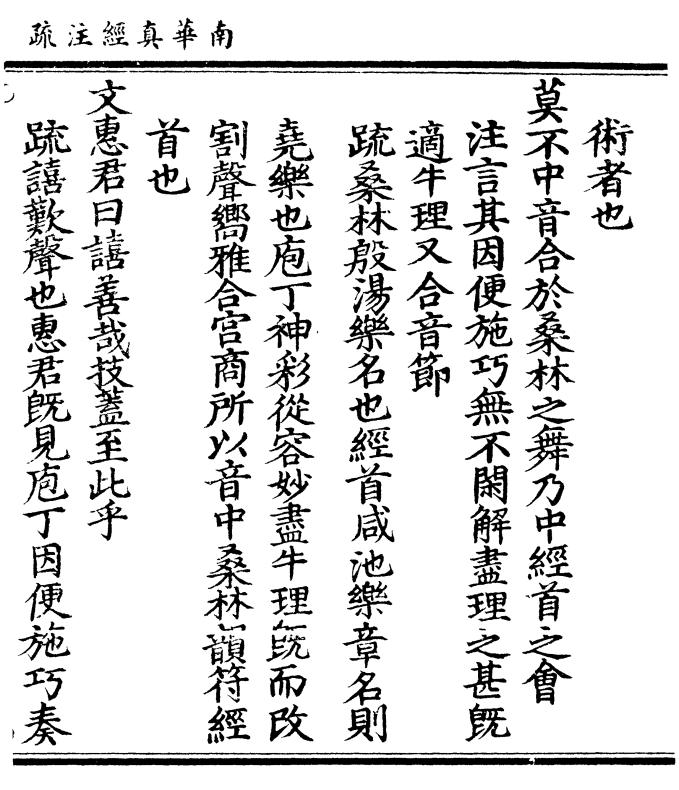 南華真經注疏
術者也
莫不中音合於桑林之舞乃中經首之會
注言其因便施巧無不閑解盡理之甚旣
適牛理又合音節
疏桑林殷湯樂名也經首咸池樂章名則
堯樂也庖丁神彩從容妙盡牛理旣而改
割聲嚮雅合宮商所以音中桑林韻符經
首也
文惠君曰譆善哉技蓋至此乎
疏譆歎聲也惠君旣見庖丁因便施巧奏